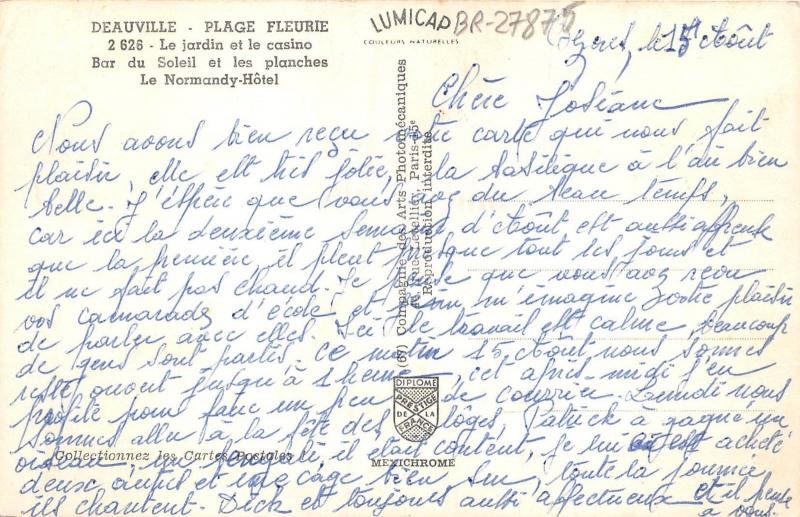 DEAUVILLE - PLAGE FLEURIE
2 626 - Le jardin et le casino
Bar du Soleil et les planches
Le Normandy-Hôtel
LUMICAP
COULEURS NATURELLES
BR-27875
le 15 Août
Chère Josiane
Nous avons bien reçu votre carte qui nous fait
plaisir, elle est très jolie, la basilique à l'air bien
belle. J'espère que vous avez du beau temps,
car ici la deuxième semaine d'Août est aussi affreuse
que la première, il pleut presque tout les jours et
il ne fait pas chaud. Je pense que vous avez reçu
vos camarades d'école et m'imagine votre plaisir
de parler avec elles. Ici le travail est calme beaucoup
de gens sont partis. Ce matin 15 Août nous sommes
resté ouvert jusqu'à 1 heure, cet après-midi j'en
profite pour faire un peu de courrier. Lundi nous
sommes allu à la fête des lôges, Patrick a gagné un
oiseau, un bengali, il était content, je lui ai acheté
deux aupil et une cage bien sur, toute la journée
ils chantent. Dick est toujours aussi affectueux et il pense
à vous.
Compagnie des Arts Photomécaniques
Rue Letellier, Paris-15e
Reproduction interdite
(67)
DIPLOME
PRESTIGE
DE LA
FRANCE
Collectionnez les Cartes Postales
MEXICHROME